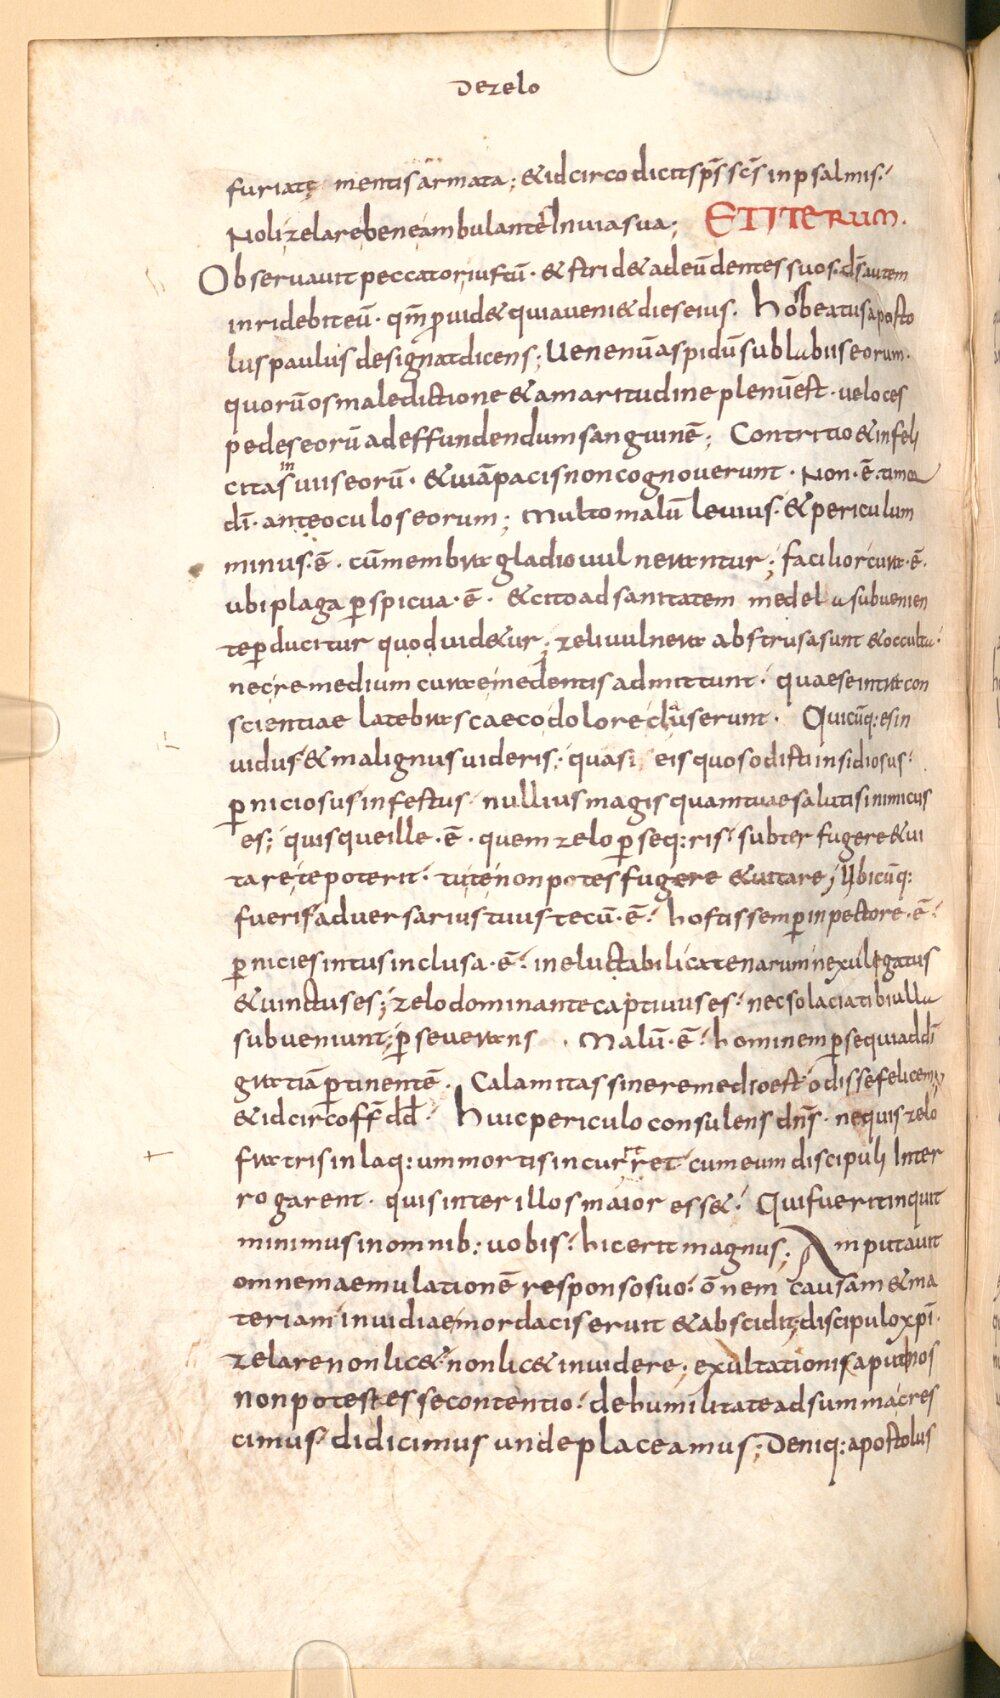 De zelo
furiatę mentis armata; & idcirco dicit sp̄s sc̄s in psalmis.
Noli zelare bene ambulantē In uia sua; ET ITERUM.
Obseruauit peccator iustū · & strid& ad eū dentes suos · dn̄s autem
inridebit eū · qm̄ ꝓuid& quia ueni& dies eius. hos beatus aposto
lus paulus designat dicens; Uenenū aspidū sub labiis eorum ·
quorū os maledictione & amaritudine plenū est · ueloces
pedes eorū ad effundendum sanguinē; Contritio & infeli
citas in uiis eorū · & uiā pacis non cognouerunt · Non · ē · timor
dī · ante oculos eorum; Multo malū leuius · & periculum
minus · ē · cū membra gladio uulnerantur; facilior cura · ē ·
ubi plaga ꝑspicua · ē · & cito ad sanitatem medela subuenien
te ꝑducitur quod uid&ur; zeli uulnera abstrusa sunt & occulta ·
nec remedium curae medentis admittunt · quae se intra con
scientiae latebras caeco dolore cluserunt · Quicūq: es in
uidus & malignus uideris · quasi eis quos odisti insidiosus
ꝑniciosus infestus · nullius magis quam tuae salutis inimicus
es; quisque ille · ē · quem zelo ꝑseq:ris · subterfugere & ui
tare te poterit · tu te non potes fugere & uitare; Ubicūq:
fueris aduersarius tuus tecū · ē · hostis semꝑ in pectore · ē ·
ꝑnicies intus inclusa · ē · ineluctabili catenarum nexu legatus
& uinctus es; zelo dominante captiuus es · nec solacia tibi ulla
subueniunt; ꝑseuerans · Malū · ē · hominem ꝑsequi ad dī
gratiā ꝑtinentē · Calamitas sine remedio est · odisse felicem;
& idcirco ff dd · huic periculo consulens dn̄s · ne quis zelo
fratris in laq:um mortis incurreret cum eum discipuli Inter
rogarent · quis inter illos maior ess& · Qui fuerit inquit
minimus in omnib: uobis · hic erit magnus; Amputauit
omnem aemulationē responso suo · ōnem causam & ma
teriam inuidiae mordacis eruit & abscidit; discipulo xpī ·
zelare non lic& · non lic& inuidere; exultationis aput nos
non potest esse contentio · de humilitate ad summa cres
cimus · didicimus unde placeamus; Deniq: apostolus